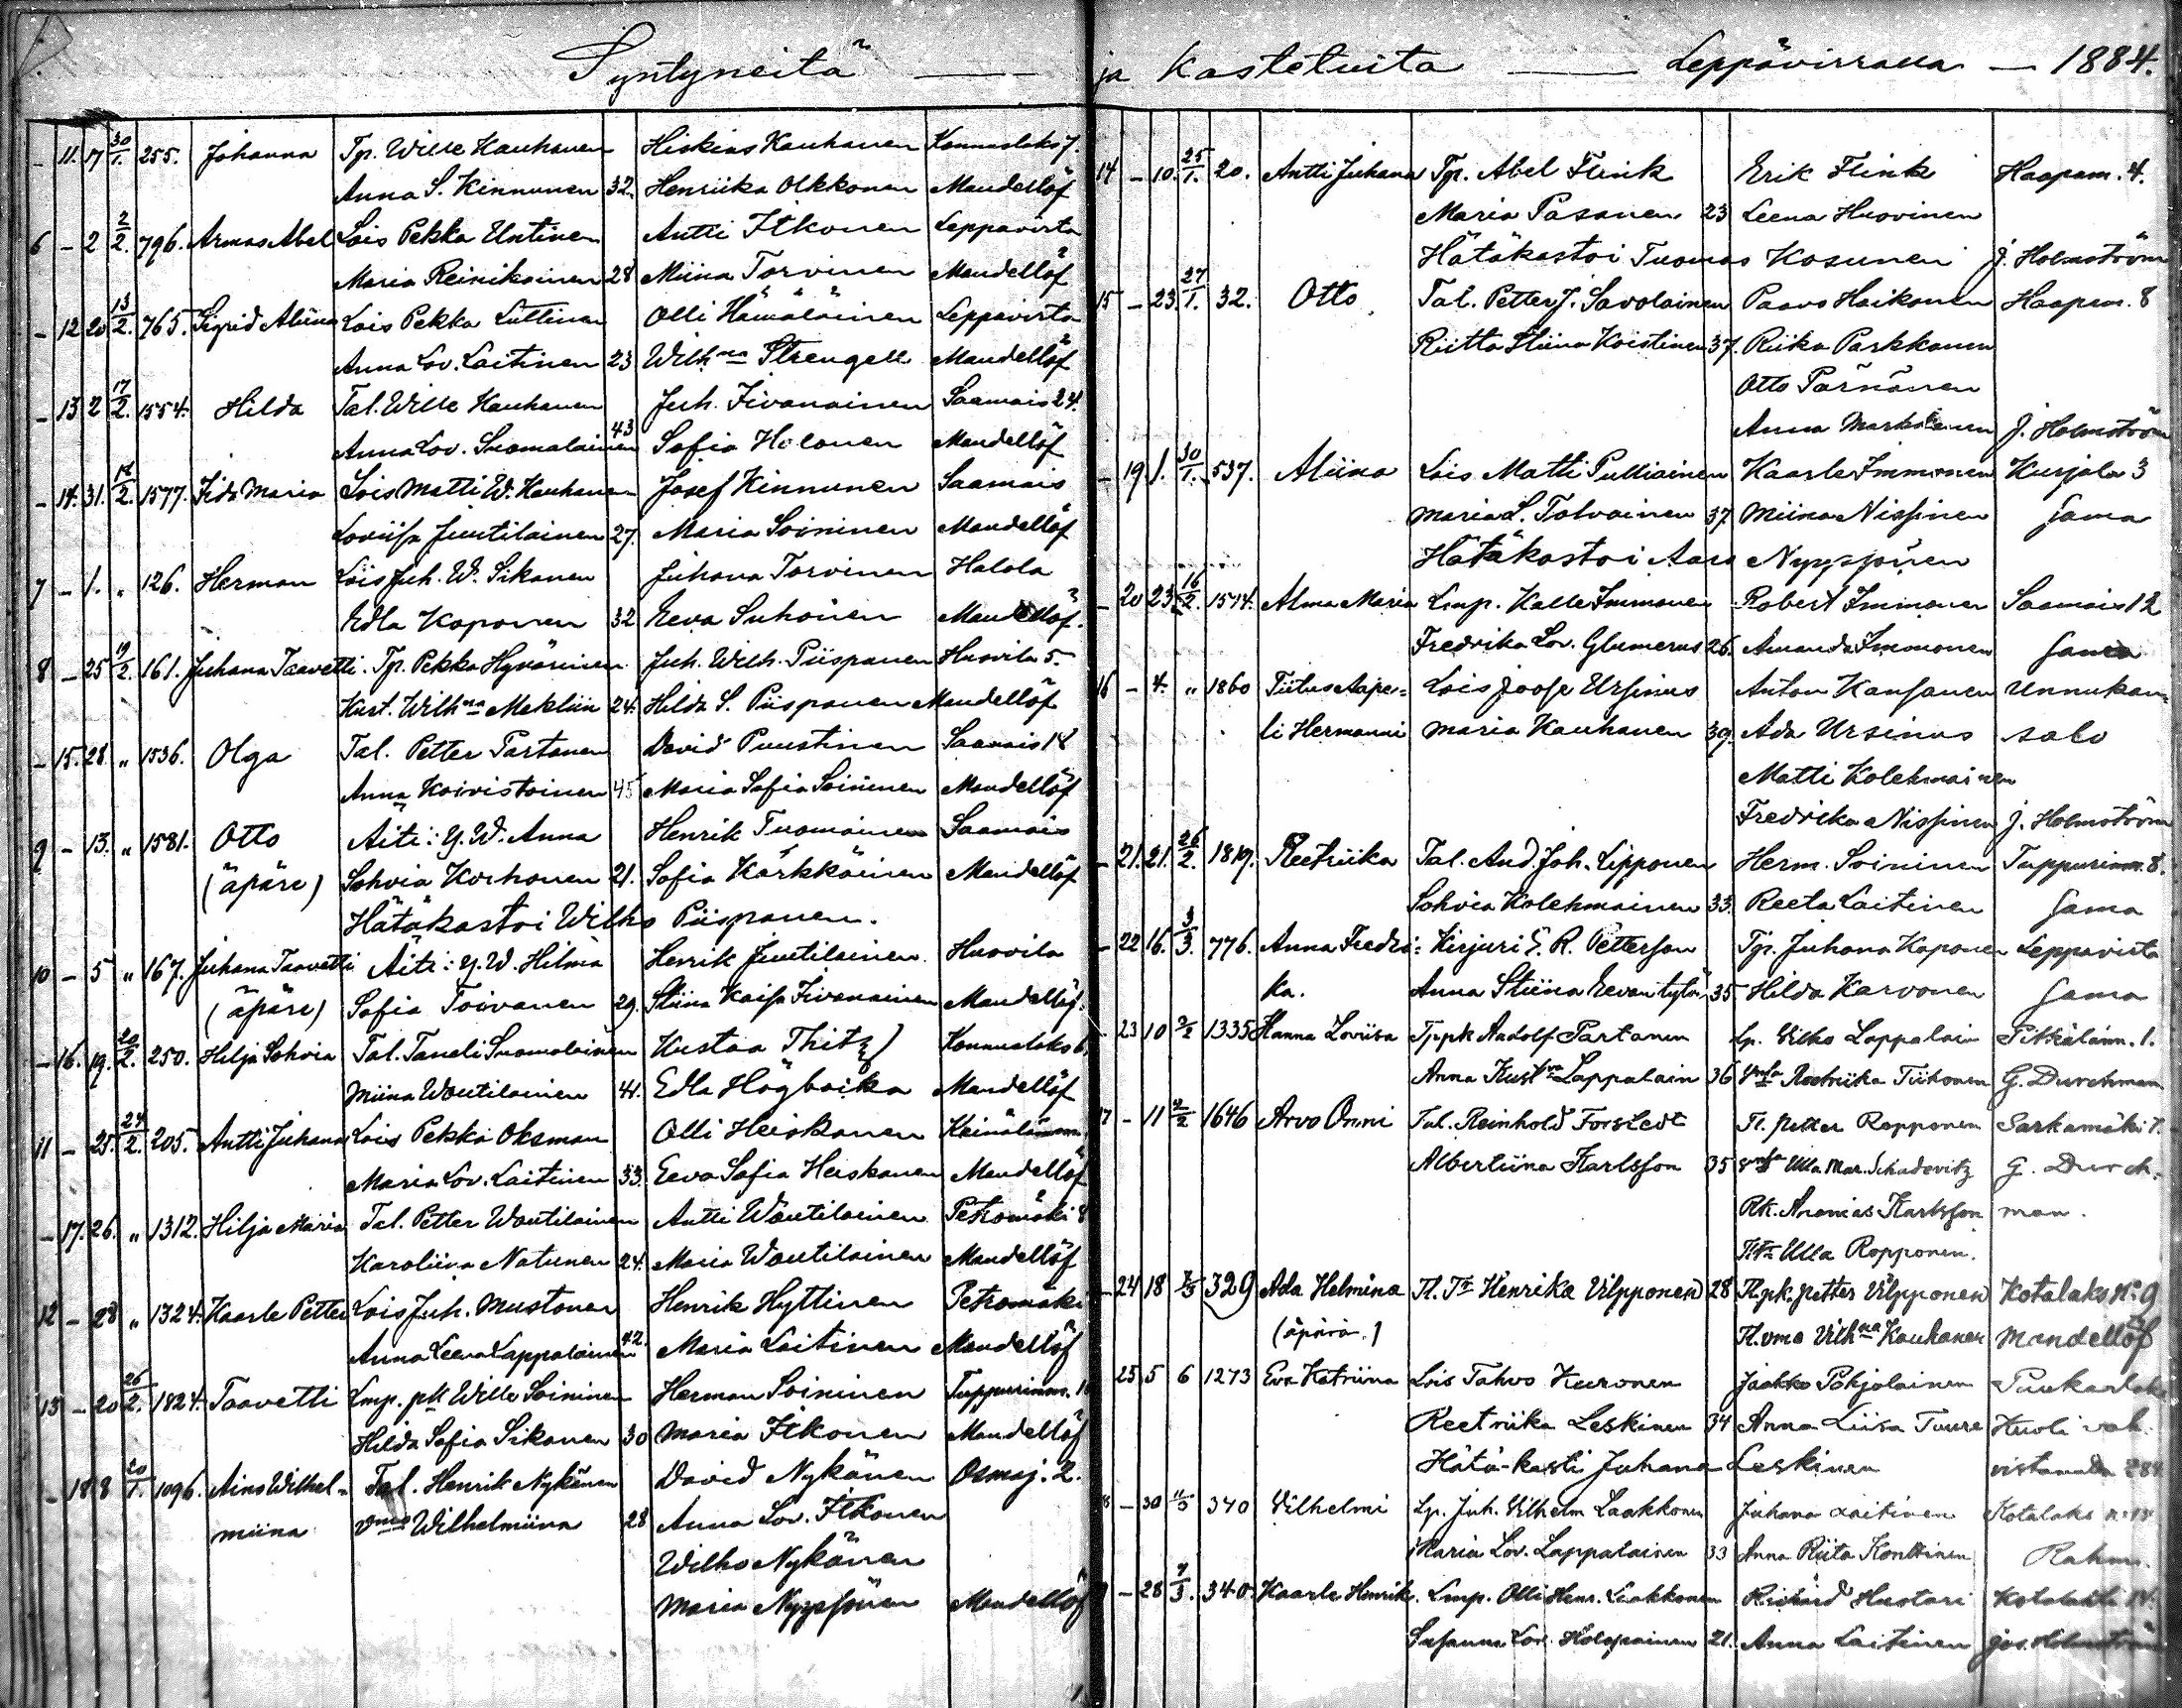 Syntyneitä — ja Kastetuita — Leppävirralla — 1884.
- 11. 17 30/1. 255. Johanna Tp. Wille Kauhanen Hiskias Kauhanen Konnuslaks 7.
Anna S. Kinnunen 32. Henriika Olkkonen Mandellöf
6 - 2 2/2. 796. Armas Abel Lois Pekka Untinen Antti Itkonen Leppävirta
Maria Reinikainen 28 Miina Torvinen Mandellöf
- 12 20 13/2. 765. Sigrid Aliina Lois Pekka Luttinen Olli Hämäläinen Leppävirta
Anna Lov. Laitinen 23 Wilh:na Strengell Mandellöf
- 13 2 17/2. 1554. Hilda Tal. Wille Kauhanen Juh. Iivanainen Saamais 24.
Anna Lov. Suomalainen 43 Sofia Holonen Mandellöf
- 14. 31. 17/2. 1577. Iida Maria Lois Matti W. Kauhanen Josef Kinnunen Saamais
Loviisa Juutilainen 27. Maria Soininen Mandellöf
7 - 1. " 126. Herman Lois Juh. W. Sikanen Juhana Torvinen Halola
Edla Koponen 32 Eeva Suhonen Mandellöf.
8 - 25 19/2. 161. Juhana Taavetti. Tp. Pekka Hyvärinen Juh. Wilh. Piispanen Huovila 5.
Kust. Wilh:na Mekliin 24. Hilda S. Piispanen Mandellöf
- 15. 28. " 1536. Olga Tal. Petter Partanen David Puustinen Saamais 18
Anna Koivistoinen 45 Maria Sofia Soininen Mandellöf
9 - 13. " 1581. Otto Äiti: Y. W. Anna Henrik Tuomainen Saamais
(äpäre) Sohvia Korhonen 21. Sofia Kärkkäinen Mandellöf
Hätäkastoi Wilho Piispanen.
10 - 5 " 167. Juhana Taavetti Äiti: Y. W. Hilma Henrik Juutilainen. Huovila
(äpäre) Sofia Toivanen 29. Stiina Kaisa Iivanainen Mandellöf.
- 16. 19. 20/2. 250. Hilja Sohvia Tal. Taneli Suomalainen Kustaa Thitz Konnuslaks 6.
Miina Woutilainen 41. Edla Högbacka Mandellöf
11 - 25. 24/2. 205. Antti Juhana Lois Pekka Oksman Olli Heiskanen Keinälänm.
Maria Lov. Laitinen 33. Eeva Sofia Heiskanen Mandellöf
- 17. 26. " 1312. Hilja Maria Tal. Petter Woutilainen Antti Woutilainen Petromäki 8
Karoliina Natunen 24. Maria Woutilainen Mandellöf
12 - 28 " 1324. Kaarle Petter Lois Juh. Mustonen Henrik Hyttinen Petromäki
Anna Leena Lappalainen 42. Maria Laitinen Mandellöf
13 - 20 26/2. 1824. Taavetti Lmp. pk Wille Soininen Herman Soininen Tuppurinm.
Hilda Sofia Sikanen 30 Maria Itkonen Mandellöf
- 18 8 20/1. 1096. Aino Wilhel- Tal. Henrik Nykänen David Nykänen Osmaj. 2.
miina Wilhelmiina 28 Anna Lov. Itkonen
Wilho Nykänen
Maria Nyyssönen Mandellöf
14 - 10. 25/1. 20. Antti Juhana Tp. Abel Flink Erik Flink Haapam. 4.
Maria Pasanen 23 Leena Huovinen
Hätäkastoi Tuomas Kosunen J. Holmström
15 - 23. 27/1. 32. Otto Tal. Petter J. Savolainen Paavo Haikonen Haapam. 8
Riitta Stiina Koistinen 37. Riika Parkkonen
Otto Pärnänen
Anna J. Holmström
- 19 1. 30/1. 537. Aliina Lois Matti Pulliainen Kaarle Immonen Kurjala 3
Maria L. Tolvainen 37. Miina Nissinen Sama
Hätäkastoi Nyyssönen
- 20 23 16/2. 1574. Alma Maria Lmp. Kalle Immonen Robert Immonen Saamais 12
Fredrika Lov. Glumerus 26. Amanda Immonen Sama
16 - 4. " 1860 Tiitus Aape- Lois Joose Ursinus Anton Kansanen Unnukan-
li Hermanni Maria Kauhanen 39. Ada Ursinus salo
Matti Kolehmainen
Fredrika Nissinen J. Holmström
- 21. 21. 26/2. 1819. Reetriika Tal. And. Joh. Lipponen Herm. Soininen Tuppurinm. 8.
Sohvia Kolehmainen 33. Reeta Laitinen Sama
- 22 16. 3/3. 776. Anna Fredri- Kirjuri E. R. Petterson Tp. Juhana Koponen Leppävirta
ka. Anna Stiina Eevantytär 35 Hilda Karvonen Sama
- 23 10 1335 Hanna Loviisa Tppk Aadolf Partanen Lp. Vilho Lappalain Pitkälänn. 1.
Anna Kust:va Lappalain 36 Reetriika Tiihonen G. Durchman
17 - 11 1646 Arvo Onni Tal. Reinhold Forstedt Tl. Petter Ropponen Sarkamäki 7.
Albertiina Karlsson 35 Ulla Mar. Schadevitz G. Durch-
Rk. Ananias Karlsson man.
Ulla Ropponen.
24 18 2/3 329 Ada Helmina Tl. Tr Henrika Vilpponen 28 Tl. pk. Petter Vilpponen Kotalaks N:o 9
(äpärä.) Tl. vmo Vilh:na Kauhanen Mandellöf
25 5 6 1273 Eva Katriina Lois Tahvo Kuronen Jaakko Pohjolainen
Reetriika Leskinen 34 Anna Liisa Tuure
Hätä-kasti Juhana Leskinen
- 30 340 Vilhelmi Lp. Juh. Vilhelm Laakkonen Juhana Laitinen Kotalaks
Maria Lov. Lappalainen 33 Anna Riita Konttinen
- 28 7/3. 340. Kaarle Henrik. Lmp. Olli Henr. Laakkonen Richard Hustari Kotalahti
Susanna Lov. Holopainen 21. Anna Laitinen Jos. Holmström